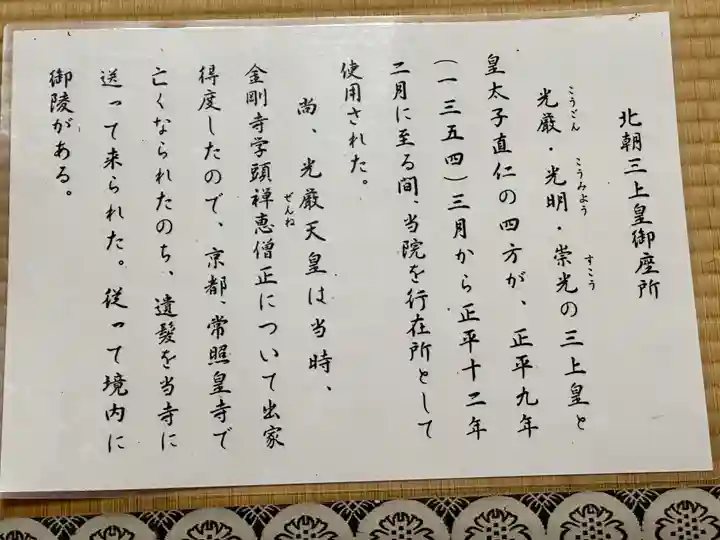 北朝三上皇御座所
光厳・光明・崇光の三上皇と
こうごん
こうみよう
すこう
皇太子直仁の四方が、正平九年
(一三五四)三月から正平十二年
二月に至る間、当院を行在所として
使用された。
尚、光厳天皇は当時、
金剛寺学頭禅恵僧正について出家
ぜんね
得度したので、京都、常照皇寺で
亡くなられたのち、遺髪を当寺に
送って来られた。従って境内に
御陵がある。